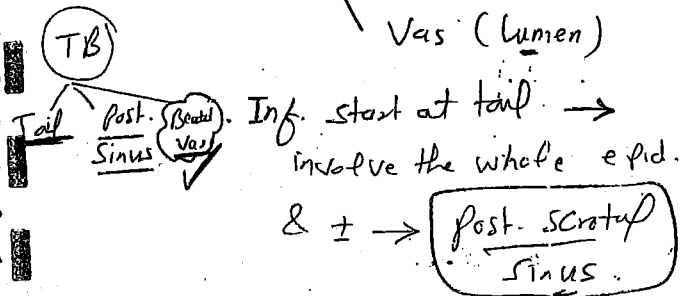 Vas (Lumen)
TB
Tail Post. Sinus Beaded Vas
Inf. start at tail →
involve the whole epid.
& ± → Post. scrotal
Sinus.